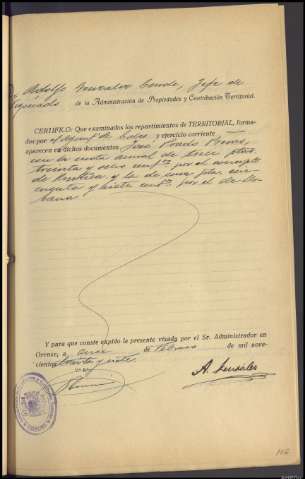 Adolfo González Conde, Jefe de
Negociado de la Administración de Propiedades y Contribución Territorial.
CERTIFICO: Que examinados los repartimientos de TERRITORIAL, forma-
dos por el Ayunt.º de Coles y ejercicio corriente
aparecen en dichos documentos, José
con la cuota anual de trece ptas
treinta y ocho cent.s por el concepto
de Rústica y la de una pta cin-
cuenta y siete cent.s por el de Ur-
bana
Y para que conste expido la presente visada por el Sr. Administrador en
Orense, a once de Febrero de mil nove-
cientos treinta y siete
A. González